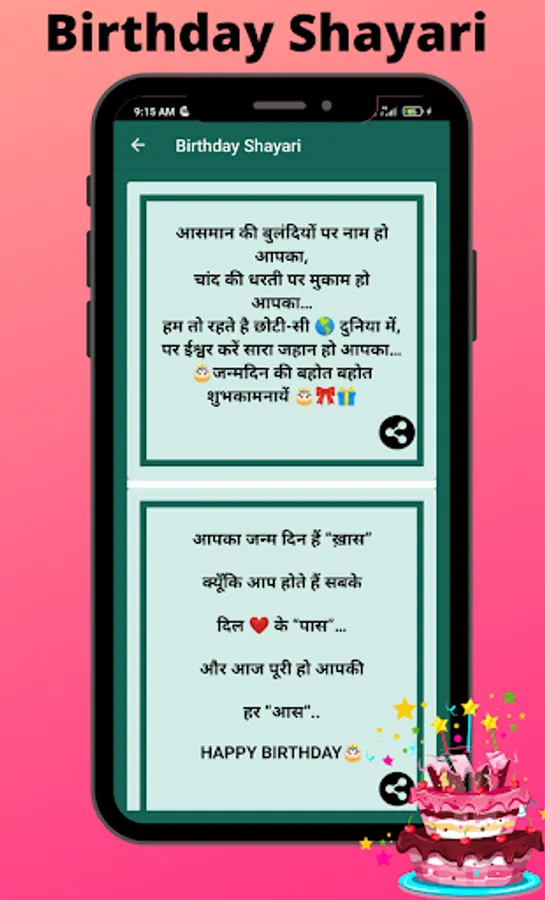 Birthday Shayari
9:15 AM
Birthday Shayari
आसमान की बुलंदियों पर नाम हो
आपका,
चांद की धरती पर मुकाम हो
आपका...
हम तो रहते है छोटी-सी 🌎 दुनिया में,
पर ईश्वर करें सारा जहान हो आपका...
🎂जन्मदिन की बहोत बहोत
शुभकामनायें 🎂🎀🎁
आपका जन्म दिन हैं "ख़ास"
क्यूँकि आप होते हैं सबके
दिल ❤️ के "पास"...
और आज पूरी हो आपकी
हर "आस"..
HAPPY BIRTHDAY🎂